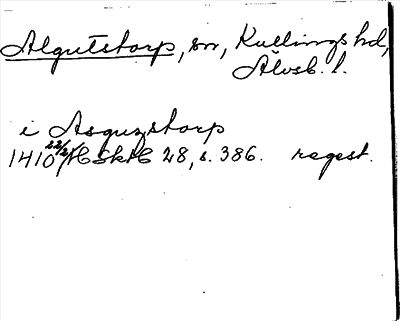 Algutstorp, sn, Kullings hd,
Älvsb. l.
i Asguzstorp
1410 22/2 HSkH 28, s. 386. regest.